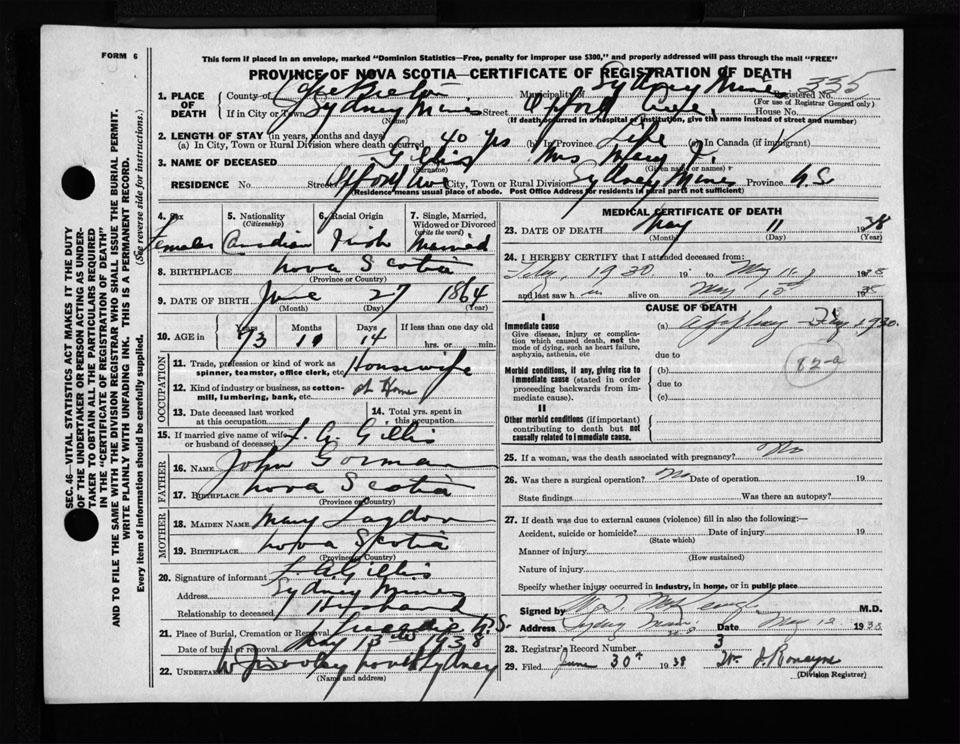 FORM 6
This form if placed in an envelope, marked "Dominion Statistics—Free, penalty for improper use $300," and properly addressed will pass through the mail "FREE"
PROVINCE OF NOVA SCOTIA—CERTIFICATE OF REGISTRATION OF DEATH
335
1. PLACE OF DEATH
County of Cape Breton Municipality of Sydney Mines Registered No.
(For use of Registrar General only)
If in City or Town Sydney Mines Street House No.
(Name) (If death occurred in a hospital or institution, give the name instead of street and number)
2. LENGTH OF STAY (in years, months and days)
(a) In City, Town or Rural Division where death occurred 40 yrs (b) In Province Life (c) In Canada (if immigrant)
3. NAME OF DECEASED Gillis Mrs. Mary J.
(Surname) (Given name or names)
RESIDENCE No. Street Ave City, Town or Rural Division Sydney Mines Province N.S.
(Residence means usual place of abode. Post Office Address for residents in rural parts not sufficient)
4. Sex Female
5. Nationality (Citizenship) Canadian
6. Racial Origin Irish
7. Single, Married, Widowed or Divorced (write the word) Married
8. BIRTHPLACE Nova Scotia
(Province or Country)
9. DATE OF BIRTH June 27 1864
(Month) (Day) (Year)
10. AGE in Years Months Days If less than one day old
73 14 hrs. or min.
OCCUPATION
11. Trade, profession or kind of work as spinner, teamster, office clerk, etc. Housewife
12. Kind of industry or business, as cotton-mill, lumbering, bank, etc. at Home
13. Date deceased last worked at this occupation
14. Total yrs. spent in this occupation
15. If married give name of wife or husband of deceased Gillis
FATHER
16. NAME John Gorman
17. BIRTHPLACE Nova Scotia
(Province or Country)
MOTHER
18. MAIDEN NAME Mary
19. BIRTHPLACE Nova Scotia
(Province or Country)
20. Signature of informant Gillis
Address Sydney Mines
Relationship to deceased Husband
21. Place of Burial, Cremation or Removal N.S.
Date of burial or removal 13th 1938
22. UNDERTAKER North Sydney
(Name and address)
MEDICAL CERTIFICATE OF DEATH
23. DATE OF DEATH May 11 1938
(Month) (Day) (Year)
24. I HEREBY CERTIFY that I attended deceased from:
1930 19 to May 11 1938
and last saw h alive on May 1938
CAUSE OF DEATH
I
Immediate cause
Give disease, injury or complication which caused death, not the mode of dying, such as heart failure, asphyxia, asthenia, etc
(a) 1930.
due to
82-a
Morbid conditions, if any, giving rise to immediate cause (stated in order proceeding backwards from immediate cause).
(b)
due to
(c)
II
Other morbid conditions (if important) contributing to death but not causally related to immediate cause.
25. If a woman, was the death associated with pregnancy? No
26. Was there a surgical operation? No Date of operation 19
State findings Was there an autopsy?
27. If death was due to external causes (violence) fill in also the following:—
Accident, suicide or homicide? Date of injury 19
(State which)
Manner of injury
(How sustained)
Nature of injury
Specify whether injury occurred in industry, in home, or in public place
Signed by M.D.
Address Sydney Mines Date May 12 1938
28. Registrar's Record Number 3
29. Filed June 30th 1938
(Division Registrar)
SEC. 46—VITAL STATISTICS ACT MAKES IT THE DUTY
OF THE UNDERTAKER OR PERSON ACTING AS UNDER-
TAKER TO OBTAIN ALL THE PARTICULARS REQUIRED
IN THE "CERTIFICATE OF REGISTRATION OF DEATH"
AND TO FILE THE SAME WITH THE DIVISION REGISTRAR WHO SHALL ISSUE THE BURIAL PERMIT.
WRITE PLAINLY WITH UNFADING INK. THIS IS A PERMANENT RECORD.
Every item of information should be carefully supplied. (See reverse side for instructions.)